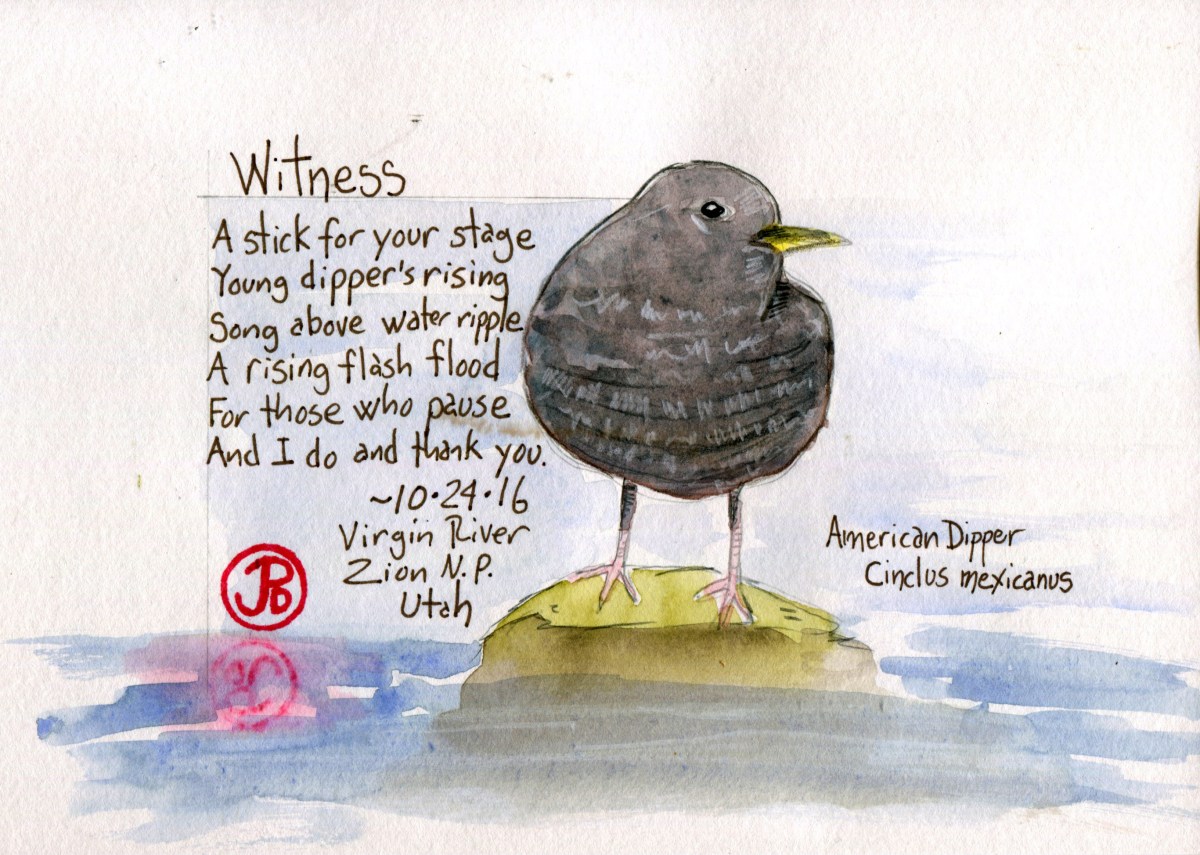 Witness
A stick for your stage
Young dipper's rising
Song above water ripple
A rising flash flood
For those who pause
And I do and thank you.
~10·24·16
Virgin River
Zion N.P.
Utah
JPB
American Dipper
Cinclus mexicanus